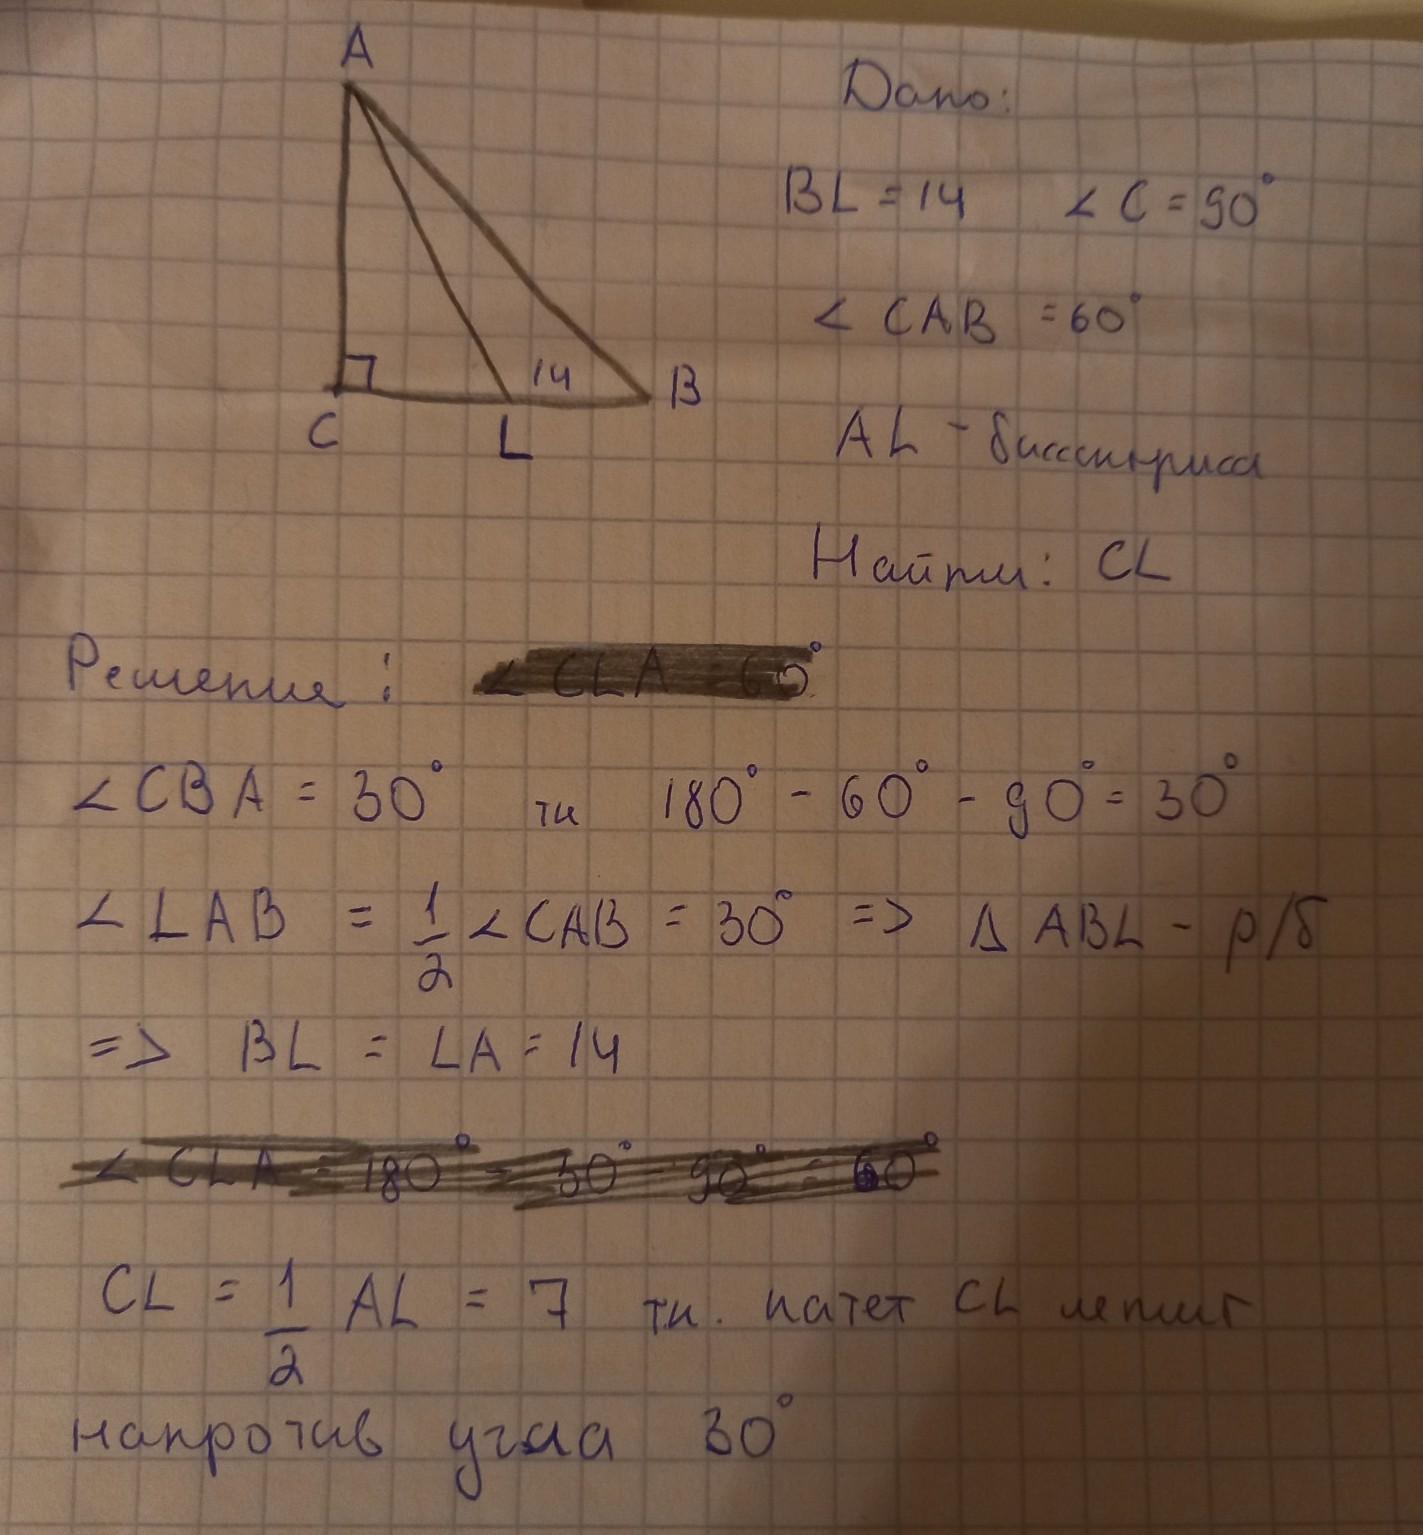 A
Дано:
BL = 14 ∠ C = 90°
∠ CAB = 60°
14
B
C
L
AL - биссектриса
Найти: CL
Решение: ∠ CLA 60°
∠ CBA = 30° тк 180° - 60° - 90° = 30°
∠ LAB = 1/2 ∠ CAB = 30° => Δ ABL - р/б
=> BL = LA = 14
∠ CLA = 180° - 30° - 90° = 60°
CL = 1/2 AL = 7 тк. катет CL лежит
напротив угла 30°